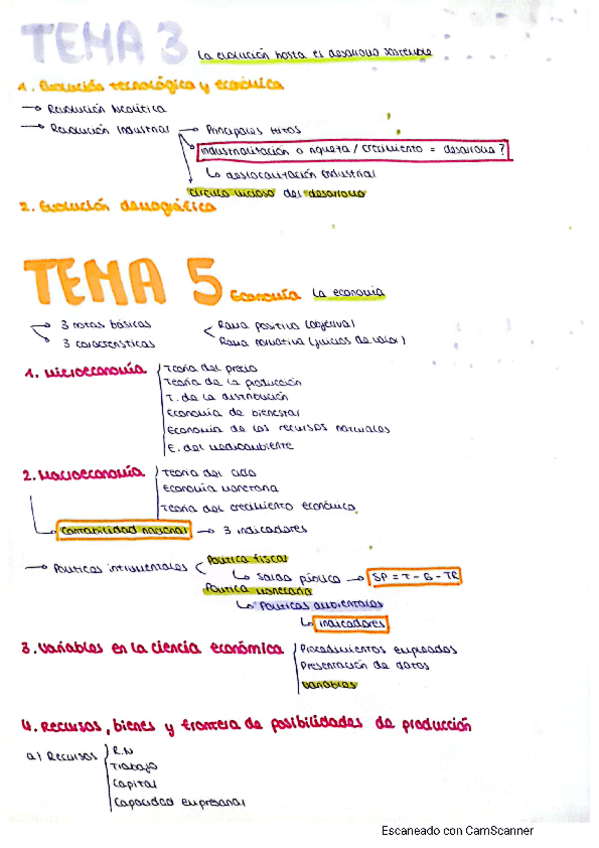 TEMA 3 La evolución hasta el desarrollo sostenible
1. Evolución tecnológica y económica
→ Revolución Neolítica
→ Revolución Industrial → Principales hitos
Industrialización o riqueza / crecimiento = desarrollo ?
↳ deslocalización industrial
círculo vicioso del desarrollo
2. Evolución demográfica
TEMA 5 Economía La economía
3 notas básicas
3 características
Rama positiva (objetiva)
Rama normativa (juicios de valor)
1. Microeconomía
Teoría del precio
Teoría de la producción
T. de la distribución
Economía de bienestar
Economía de los recursos naturales
E. del medioambiente
2. Macroeconomía
Teoría del ciclo
Economía monetaria
Teoría del crecimiento económico
Contabilidad nacional → 3 indicadores
→ Políticas instrumentales
Política fiscal
↳ Saldo público → SP = T - G - TR
Política monetaria
↳ Políticas ambientales
↳ indicadores
3. Variables en la ciencia económica
Procedimientos empleados
Presentación de datos
Variables
4. Recursos, bienes y frontera de posibilidades de producción
a) Recursos
R.N
Trabajo
Capital
Capacidad empresarial
Escaneado con CamScanner